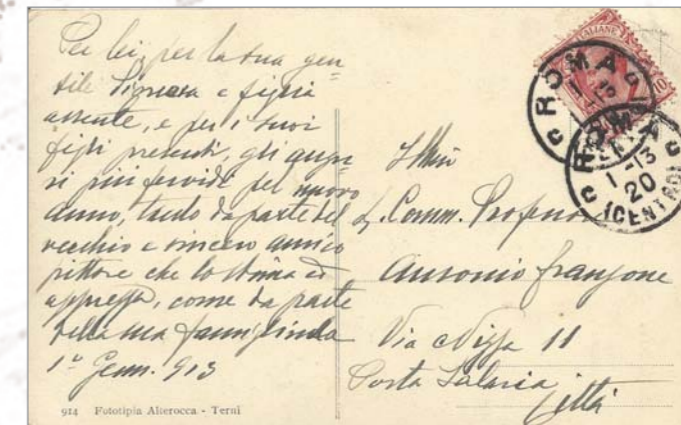 Per lei, per la sua gen
tile Signora e figlia
assente, e per i suoi
figli presenti, gli augu
ri più fervidi pel nuovo
anno, tanto da parte del
vecchio e sincero amico
pittore che lo stima ed
apprezza, come da parte
della sua famigliuola
1º Genn. 913
914 Fototipia Alterocca - Terni
ITALIANE
10
ROMA
1-13
ROMA
1-13
20
(CENTRO)
Comm.
Antonio Frangone
Via Nizza 11
Porta Salaria
Città